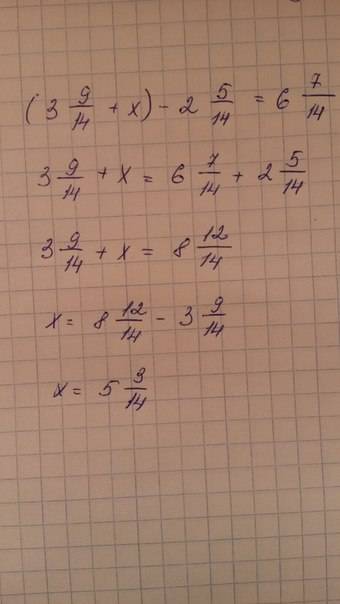 (3 9/14 + x) - 2 5/14 = 6 7/14
3 9/14 + x = 6 7/14 + 2 5/14
3 9/14 + x = 8 12/14
x = 8 12/14 - 3 9/14
x = 5 3/14